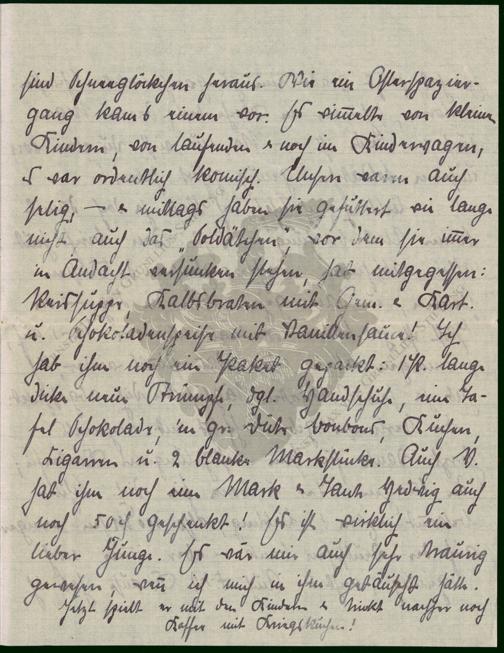 sind Schneeglöckchen heraus. Wie ein Osterspazier-
gang kam's einem vor. Es wimmelte von kleinen
Kindern, von laufenden & noch im Kinderwagen,
& war ordentlich komisch. Unsere waren auch
selig, – & mittags haben sie gefuttert wie lange
nicht auch das „Soldätchen“, vor dem sie immer
in Andacht versunken stehen, hat mitgegessen:
Reissuppe, Kalbsbraten mit Gem. & Kart.
u. Schokoladenspeise mit Vanillensauce! Ich
hab ihm noch ein Paket gepackt: 1 P. lange
dicke neue Strümpfe, dgl. Handschuhe, eine Ta-
fel Schokolade, 'ne gr. Düte bonbons, Kuchen,
Zigarren u. 2 blanke Markstücke. Auch V.
hat ihm noch eine Mark & Tante Hedwig auch
noch 50 geschenkt! Es ist wirklich ein
lieber Junge. Es wär mir auch sehr traurig
gewesen, wenn ich mich in ihm getäuscht hätte.
Jetzt spielt er mit den Kindern & trinkt nachher noch
Kaffee mit Kriegskuchen!